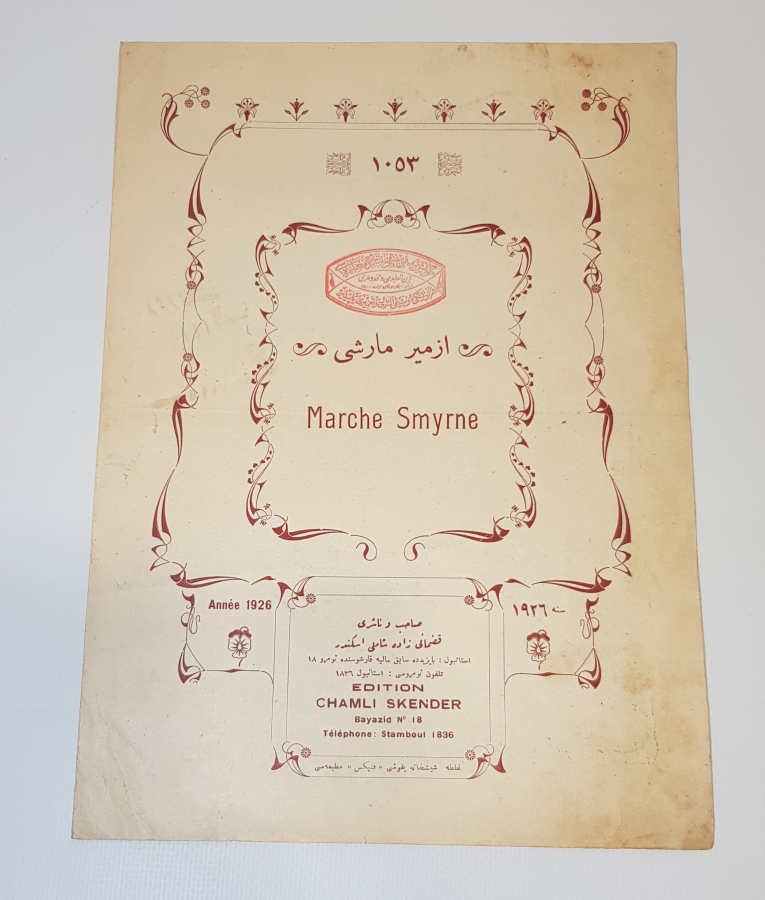 ١٠٥٣
ازمير مارشى
Marche Smyrne
Année 1926
سنه ١٩٢٦
صاحب و ناشرى
قضمانى زاده شاملى اسكندر
استانبول : بايزيدده سابق ماليه قارشوسنده نومرو ١٨
تلفون نومروسى : استانبول ١٨٣٦
EDITION
CHAMLI SKENDER
Bayazid Nº 18
Téléphone: Stamboul 1836
غلطه شيشخانه يقوشى « فنيكس » مطبعه‌سى